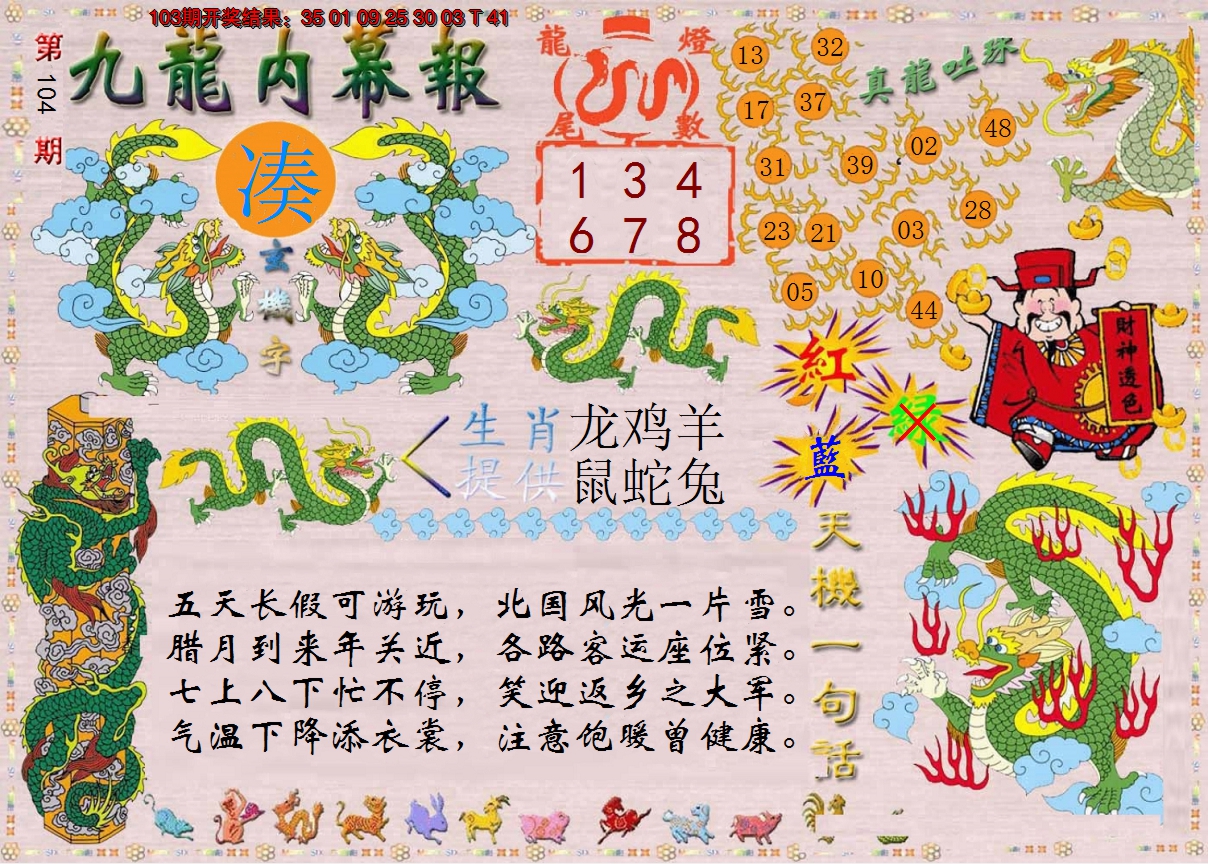 103期开奖结果：35 01 09 25 30 03 T 41
第104期
九龍內幕報
湊
玄機字
龍燈
尾數
1 3 4
6 7 8
真龍吐珠
13 32
17 37
31 39 02 48
23 21 03 28
05 10 44
紅
绿
藍
財神透色
生肖 龙鸡羊
提供 鼠蛇兔
五天长假可游玩，北国风光一片雪。
腊月到来年关近，各路客运座位紧。
七上八下忙不停，笑迎返乡之大军。
气温下降添衣裳，注意饱暖曾健康。
天機一句話